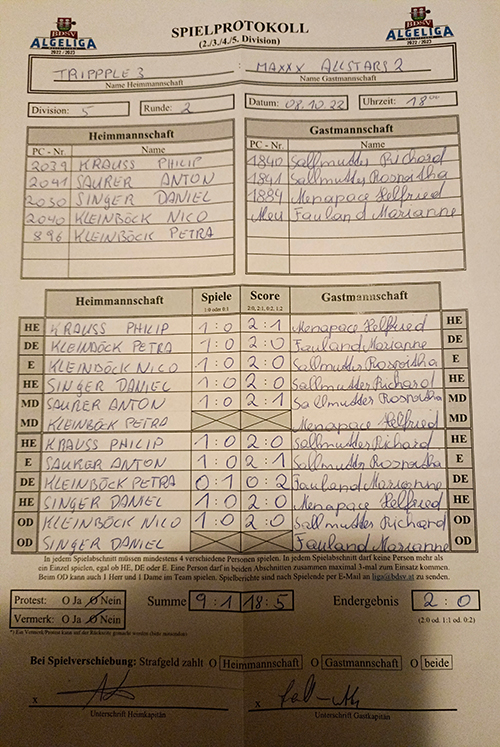 BDSV
ALGELIGA
2022 / 2023
SPIELPROTOKOLL
(2./3./4./5. Division)
BDSV
ALGELIGA
2022 / 2023
TRIPPPLE 3 : MAXXX ALLSTARS 2
Name Heimmannschaft Name Gastmannschaft
Division: 5 Runde: 2 Datum: 08.10.22 Uhrzeit: 18 00
Heimmannschaft Gastmannschaft
PC - Nr. Name PC - Nr. Name
2039 KRAUSS PHILIP 1840 Sallmutter Richard
2041 SAURER ANTON 1841 Sallmutter Roswitha
2030 SINGER DANIEL 1889 Menapace Helfried
2040 KLEINBÖCK NICO Neu Fauland Marianne
896 KLEINBÖCK PETRA
Heimmannschaft Spiele Score Gastmannschaft
1:0 oder 0:1 2:0, 2:1, 0:2, 1:2
HE KRAUSS PHILIP 1:0 2:1 Menapace Helfried HE
DE KLEINBÖCK PETRA 1:0 2:0 Fauland Marianne DE
E KLEINBÖCK NICO 1:0 2:0 Sallmutter Roswitha E
HE SINGER DANIEL 1:0 2:0 Sallmutter Richard HE
MD SAURER ANTON 1:0 2:1 Sallmutter Roswitha MD
MD KLEINBÖCK PETRA Menapace Helfried MD
HE KRAUSS PHILIP 1:0 2:0 Sallmutter Richard HE
E SAURER ANTON 1:0 2:1 Sallmutter Roswitha E
DE KLEINBÖCK PETRA 0:1 0:2 Fauland Marianne DE
HE SINGER DANIEL 1:0 2:0 Menapace Helfried HE
OD KLEINBÖCK NICO 1:0 2:0 Sallmutter Richard OD
OD SINGER DANIEL Fauland Marianne OD
In jedem Spielabschnitt müssen mindestens 4 verschiedene Personen spielen. In jedem Spielabschnitt darf keine Person mehr als
ein Einzel spielen, egal ob HE, DE oder E. Eine Person darf in beiden Abschnitten zusammen maximal 3-mal zum Einsatz kommen.
Beim OD kann auch 1 Herr und 1 Dame im Team spielen. Spielberichte sind nach Spielende per E-Mail an liga@bdsv.at zu senden.
Protest: O Ja O Nein Summe 9:1 18:5 Endergebnis 2:0
Vermerk: O Ja O Nein (2:0 od. 1:1 od. 0:2)
Bei Spielverschiebung: Strafgeld zahlt O Heimmannschaft O Gastmannschaft O beide
x x
Unterschrift Heimkapitän Unterschrift Gastkapitän